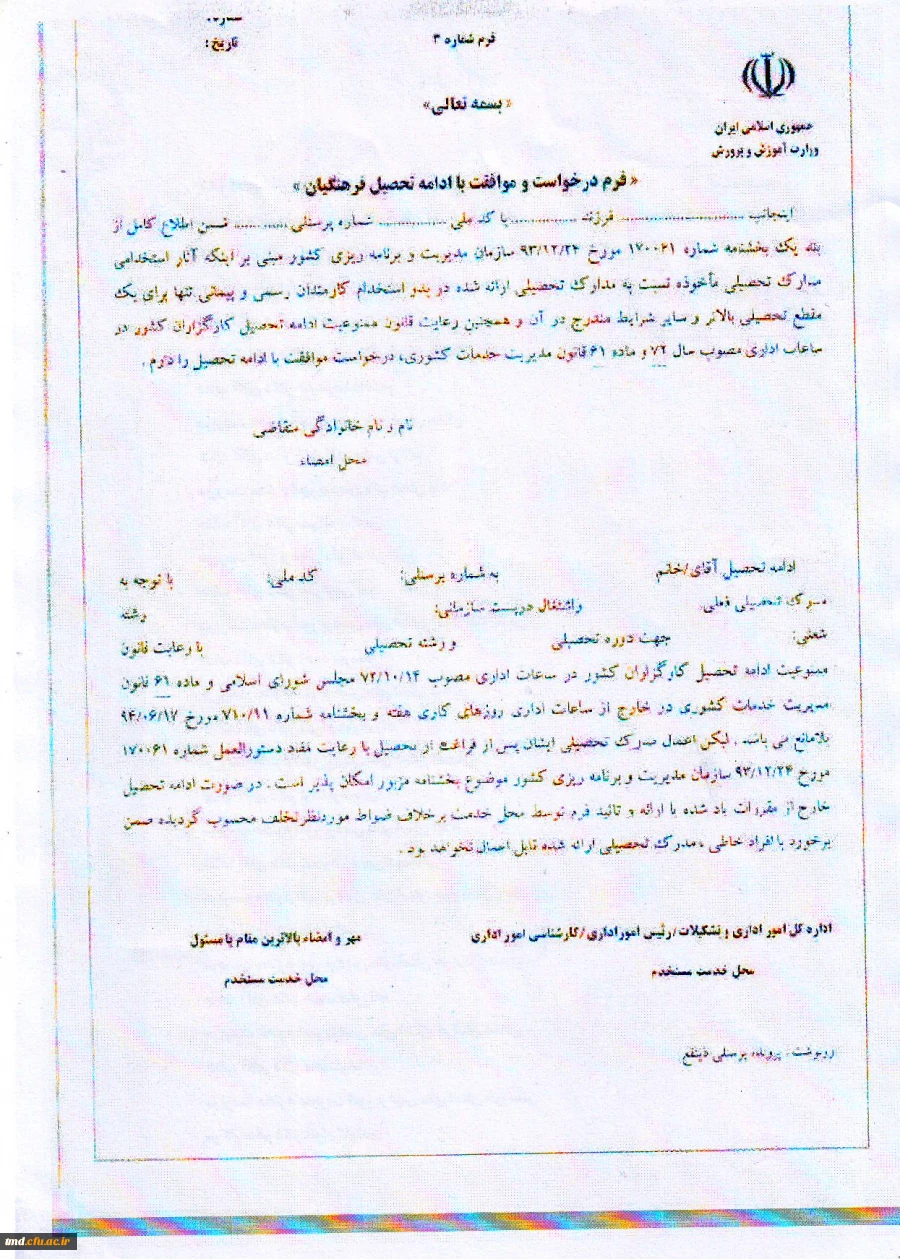 شماره:
فرم شماره ۳
تاریخ:
«بسمه تعالی»
جمهوری اسلامی ایران
وزارت آموزش و پرورش
« فرم درخواست و موافقت با ادامه تحصیل فرهنگیان »
اینجانب .......................... فرزند ..............با کد ملی ............... شماره پرسنلی ............ ضمن اطلاع کامل از
بند یک بخشنامه شماره ۱۷۰۰۶۱ مورخ ۹۳/۱۲/۲۴ سازمان مدیریت و برنامه ریزی کشور مبنی بر اینکه آثار استخدامی
مدارک تحصیلی مأخوذه نسبت به مدارک تحصیلی ارائه شده در بدو استخدام کارمندان رسمی و پیمانی تنها برای یک
مقطع تحصیلی بالاتر و سایر شرایط مندرج در آن و همچنین رعایت قانون ممنوعیت ادامه تحصیل کارگزاران کشور در
ساعات اداری مصوب سال ۷۲ و ماده ۶۱ قانون مدیریت خدمات کشوری، درخواست موافقت با ادامه تحصیل را دارم .
نام و نام خانوادگی متقاضی
محل امضاء
ادامه تحصیل آقای/خانم به شماره پرسنلی: کد ملی: با توجه به
مدرک تحصیلی فعلی: واشتغال درپست سازمانی: رشته
شغلی: جهت دوره تحصیلی و رشته تحصیلی با رعایت قانون
ممنوعیت ادامه تحصیل کارگزاران کشور در ساعات اداری مصوب ۷۲/۱۰/۱۴ مجلس شورای اسلامی و ماده ۶۱ قانون
مدیریت خدمات کشوری در خارج از ساعات اداری روزهای کاری هفته و بخشنامه شماره ۷۱۰/۹۱ مورخ ۹۴/۰۶/۱۷
بلامانع می باشد . لیکن اعمال مدرک تحصیلی ایشان پس از فراغت از تحصیل با رعایت مفاد دستورالعمل شماره ۱۷۰۰۶۱
مورخ ۹۳/۱۲/۲۴ سازمان مدیریت و برنامه ریزی کشور موضوع بخشنامه مزبور امکان پذیر است . در صورت ادامه تحصیل
خارج از مقررات یاد شده با ارائه و تائید فرم توسط محل خدمت برخلاف ضوابط موردنظرتخلف محسوب گردیده ضمن
برخورد با افراد خاطی ،مدرک تحصیلی ارائه شده قابل اعمال نخواهد بود .
اداره کل امور اداری و تشکیلات/رئیس اموراداری/کارشناسی امور اداری
محل خدمت مستخدم
مهر و امضاء بالاترین مقام یا مسئول
محل خدمت مستخدم
رونوشت: پرونده پرسنلی ذینفع
tmd.cfu.ac.ir